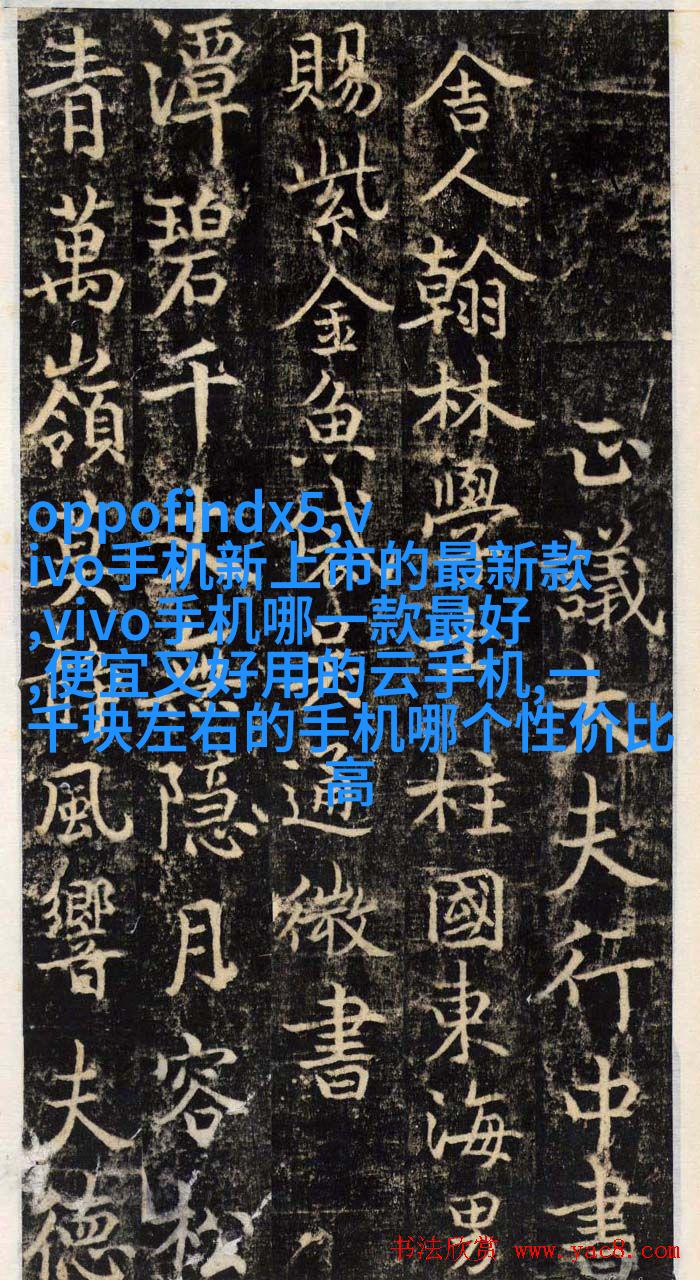 正議大夫行中書
舍人翰林學柱國東海男
賜紫金魚袋吳通微書
潭碧千隱月容松
青萬嶺風響夫德
oppofindx5,v
ivo手机新上市的最新款
,vivo手机哪一款最好
,便宜又好用的云手机,一
千块左右的手机哪个性价比
高
书法欣赏 www.yac8.com